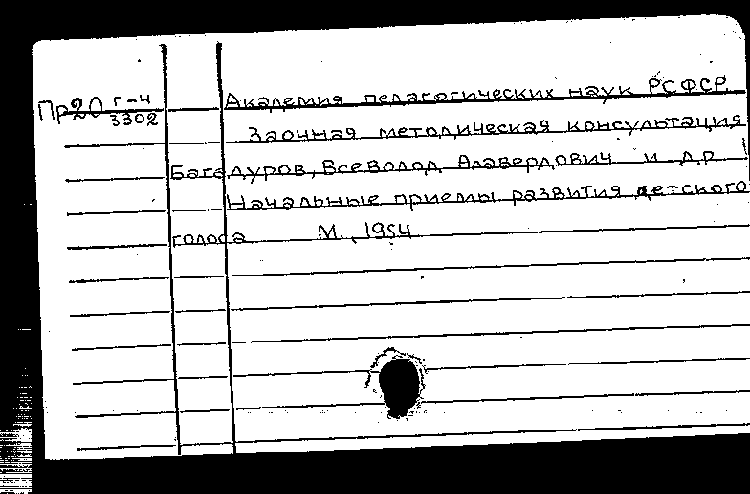 Пр20 г-4/3302 Академия педагогических наук РСФСР
Заочная методическая консультация
Багадуров, Всеволод Алавердович и др
Начальные приемы развития детского
голоса М, 1954